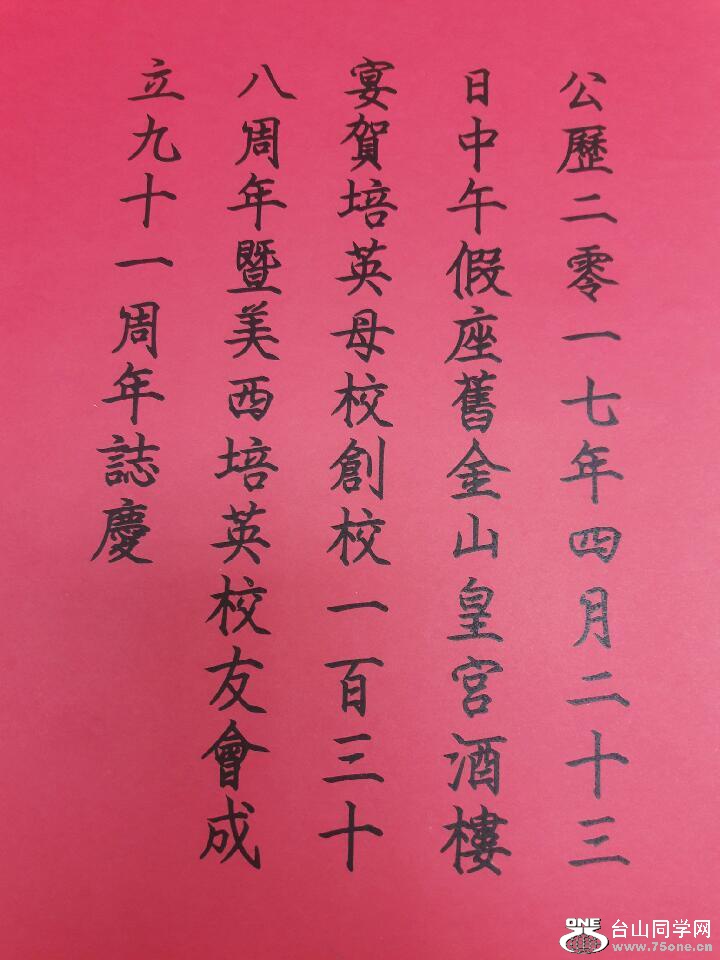 公歷二零一七年四月二十三
日中午假座舊金山皇宮酒樓
宴賀培英母校創校一百三十
八周年暨美西培英校友會成
立九十一周年誌慶
ONE
台山同学网
www.75one.cn